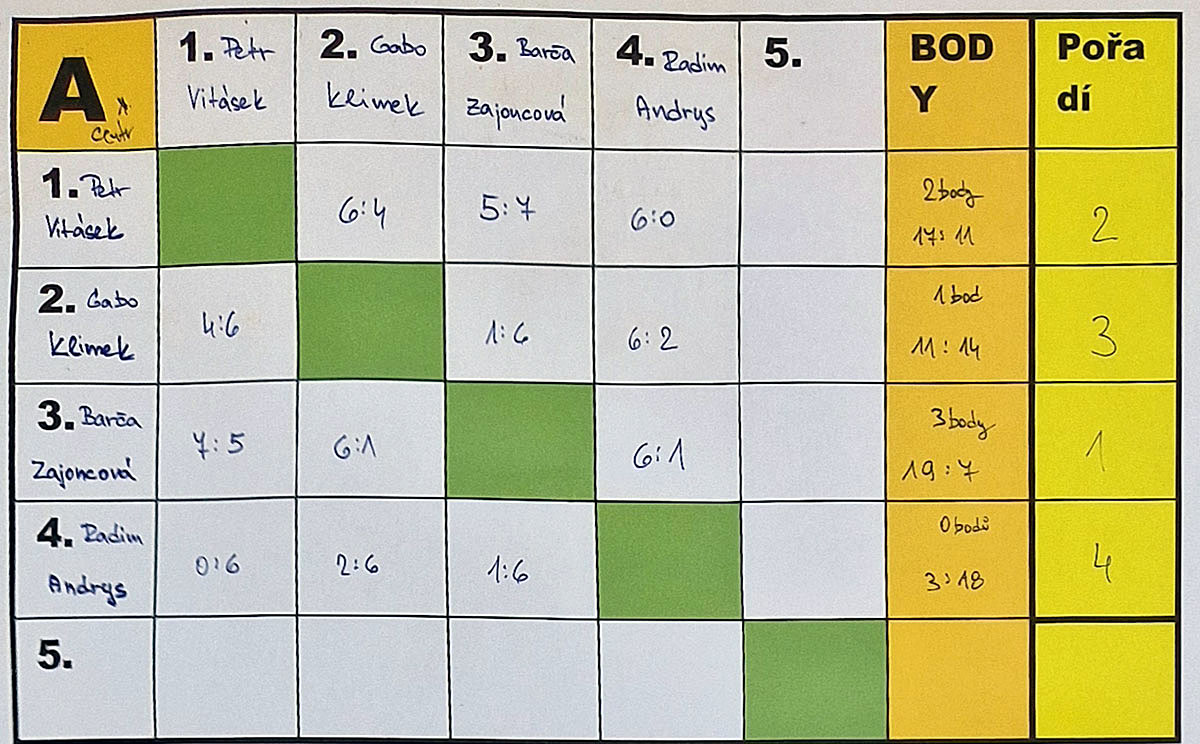 A
centr
1. Petr
Vitásek
2. Gabo
Klimek
3. Barča
Zajoncová
4. Radim
Andrys
5.
BOD
Y
Pořa
dí
1. Petr
Vitásek
6:4
5:7
6:0
2 body
17:11
2
2. Gabo
Klimek
4:6
1:6
6:2
1 bod
11:14
3
3. Barča
Zajoncová
7:5
6:1
6:1
3 body
19:7
1
4. Radim
Andrys
0:6
2:6
1:6
0 bodů
3:18
4
5.